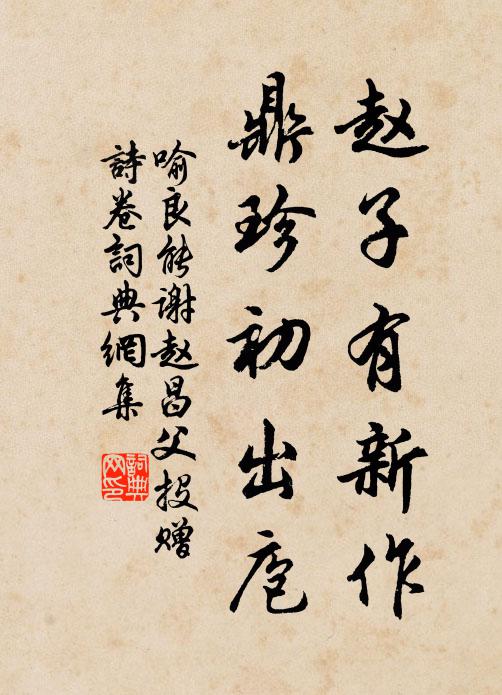 赵子有新作
鼎珍初出庖
喻良能谢赵昌父投赠
詩卷詞典網集
詞典網印